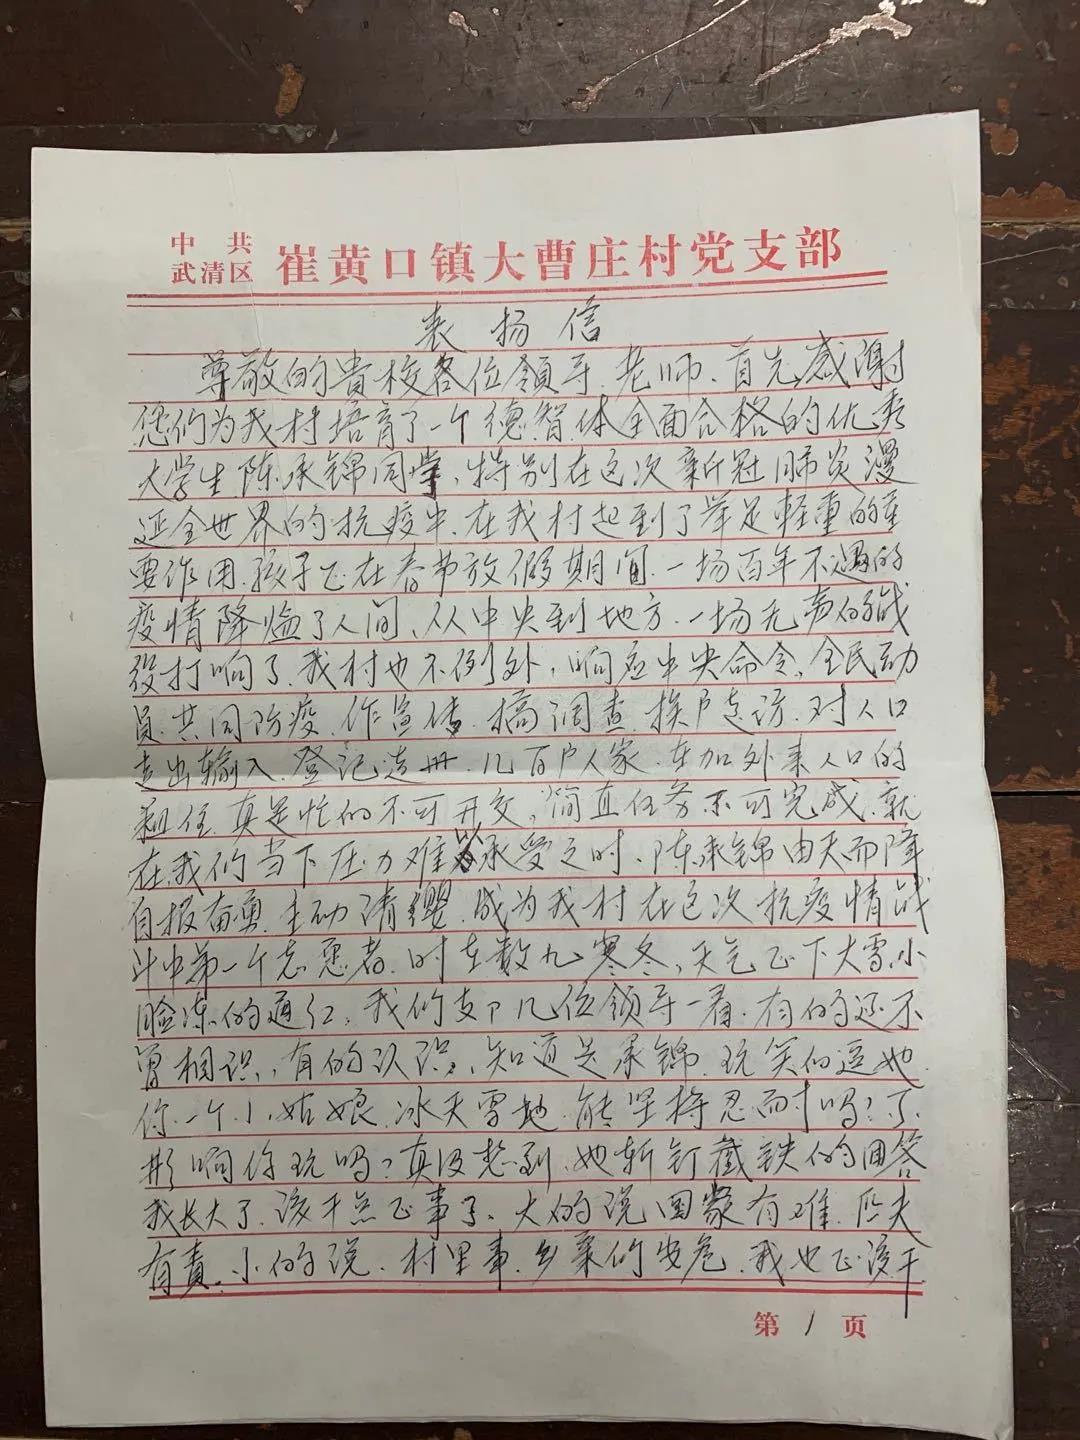 中共
武清区 崔黄口镇大曹庄村党支部
表扬信
尊敬的贵校各位领导、老师、首先感谢
您们为我村培育了一个德智体全面合格的优秀
大学生陈承锦同学、特别在这次新冠肺炎漫
延全世界的抗疫中、在我村起到了举足轻重的重
要作用、孩子正在春节放假期间、一场百年不遇的
疫情降临了人间、从中央到地方、一场无声的战
役打响了、我村也不例外，响应中央命令、全民动
员、共同防疫、作宣传、搞调查、挨户走访、对人口
走出输入、登记造册、几百户人家、在加外来人口的
租住、真是忙的不可开交，简直任务不可完成、就
在我们当下压力难以承受之时、陈承锦由天而降
自报奋勇、主动请缨、成为我村在这次抗疫情战
斗中第一个志愿者、时在数九寒冬，天气正下大雪、小
脸冻的通红、我们支部几位领导一看、有的还不
曾相识、有的认识、知道是承锦、玩笑的逗她、
你一个小姑娘、冰天雪地、能坚持忍耐吗？不
影响你玩吗？真没想到、她斩钉截铁的回答
我长大了、该干点正事了、大的说国家有难、匹夫
有责、小的说、村里事、乡亲们安危、我也正该干
第 1 页